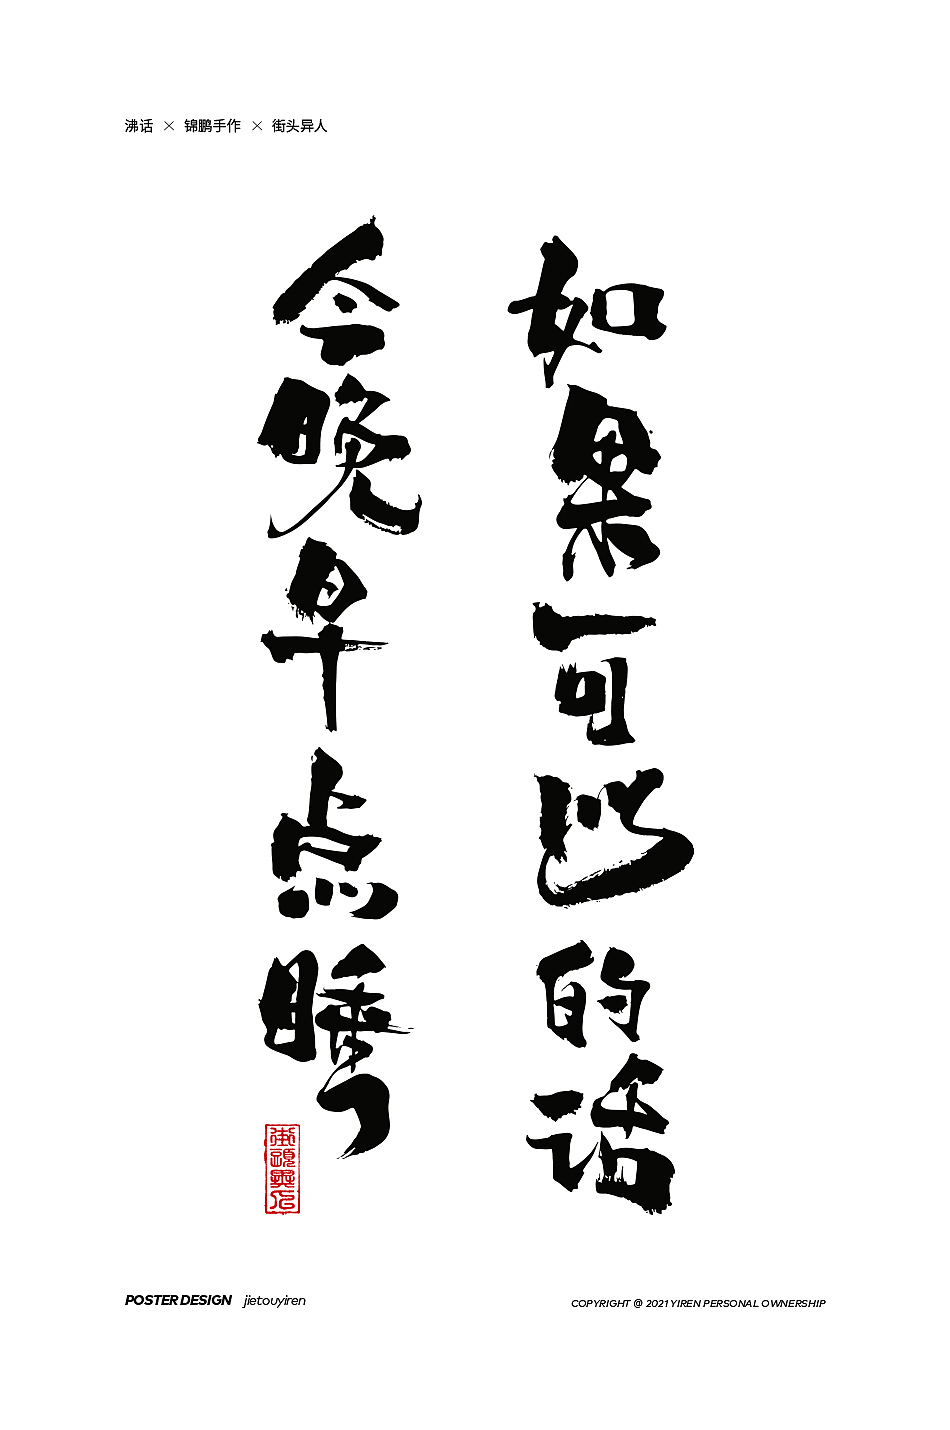 沸话 × 锦鹏手作 × 街头异人
如果可以的话
今晚早点睡
街頭異人
POSTER DESIGN jietouyiren
COPYRIGHT @ 2021 YIREN PERSONAL OWNERSHIP